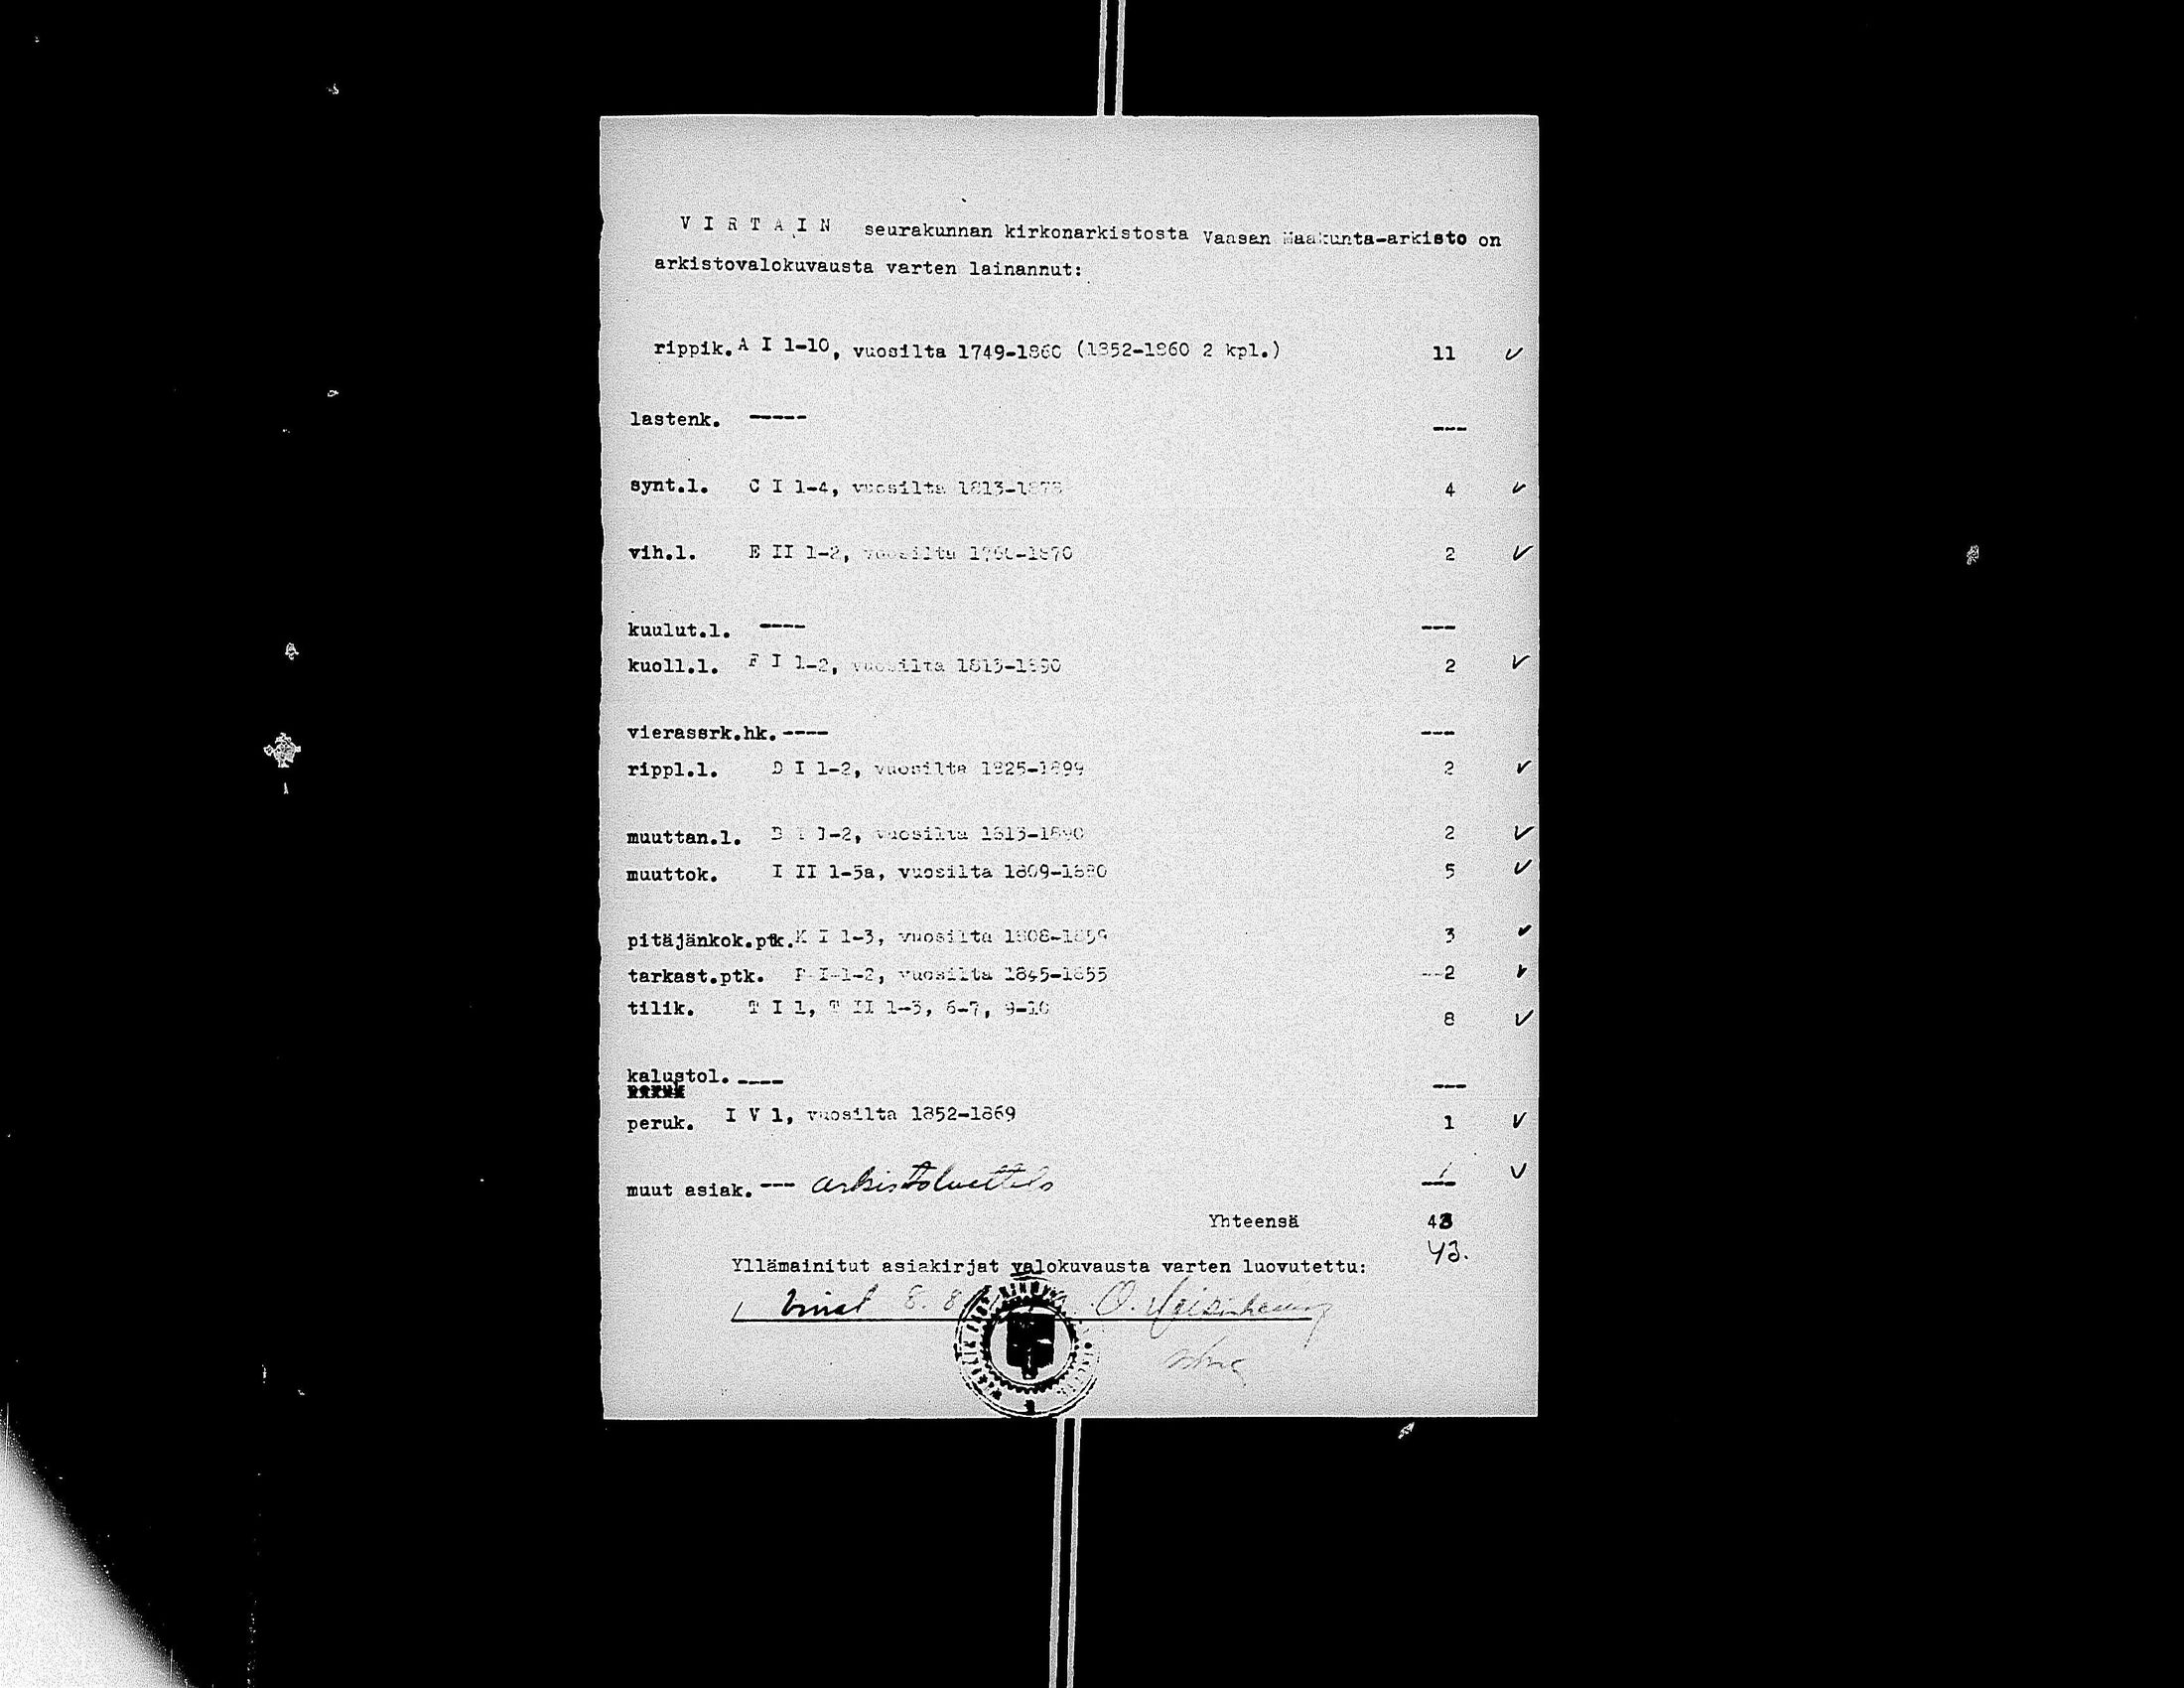 V I R T A I N seurakunnan kirkonarkistosta Vaasan Maakunta-arkisto on
arkistovalokuvausta varten lainannut:
rippik. A I 1-10, vuosilta 1749-1860 (1852-1860 2 kpl.) 11 ✓
lastenk. ----- ---
synt.l. C I 1-4, vuosilta 1813-1878 4 ✓
vih.l. E II 1-2, vuosilta 2 ✓
kuulut.l. ---- ---
kuoll.l. F I 1-2, vuosilta 1813-1890 2 ✓
vierassrk.hk. ---- ---
rippl.l. D I 1-2, vuosilta 1825-1899 2 ✓
muuttan.l. B I 1-2, vuosilta 1813-1890 2 ✓
muuttok. I II 1-5a, vuosilta 1809-1880 5 ✓
pitäjänkok.ptk. K I 1-3, vuosilta 1808-1859 3 ✓
tarkast.ptk. P I-1-2, vuosilta 1845-1855 --2 ✓
tilik. T I 1, T II 1-3, 6-7, 9-10 8 ✓
kalustol. ---- ---
peruk
peruk. I V 1, vuosilta 1852-1869 1 ✓
muut asiak. --- arkistoluettelo 1 ✓
Yhteensä 43
43.
Yllämainitut asiakirjat valokuvausta varten luovutettu:
Virrat 8. 8 O.